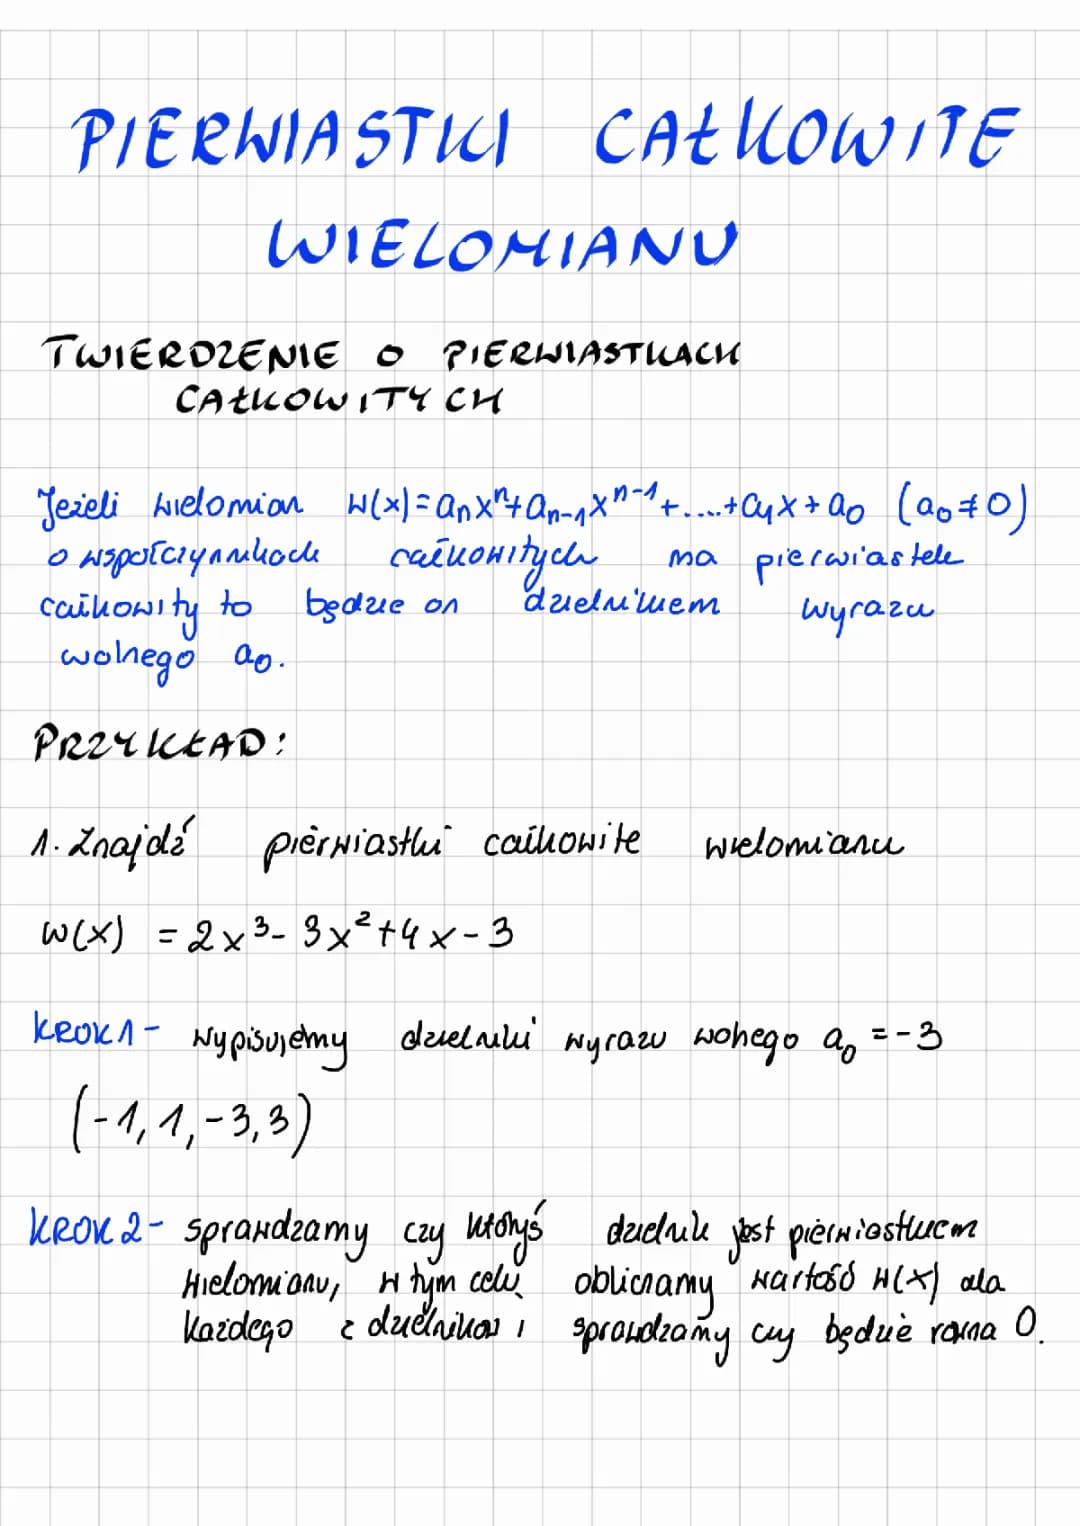 PIERWIASTKI CAŁKOWITE
WIELOMIANU
TWIERDZENIE O PIERWIASTKACH
CAŁKOWITYCH
Jeżeli wielomian W(x)=aₙxⁿ+aₙ₋₁xⁿ⁻¹+....+a₁x+a₀ (a₀≠0)
o współczynnikach całkowitych ma pierwiastek
całkowity to będzie on dzielnikiem wyrazu
wolnego a₀.
PRZYKŁAD:
1. Znajdź pierwiastki całkowite wielomianu
W(x) = 2x³- 3x²+4x-3
KROK1- wypisujemy dzielniki wyrazu wolnego a₀ =-3
(-1,1,-3,3)
KROK2- sprawdzamy czy któryś dzielnik jest pierwiastkiem
wielomianu, w tym celu obliczamy wartość W(x) dla
każdego z dzielników i sprawdzamy czy będzie równa 0.